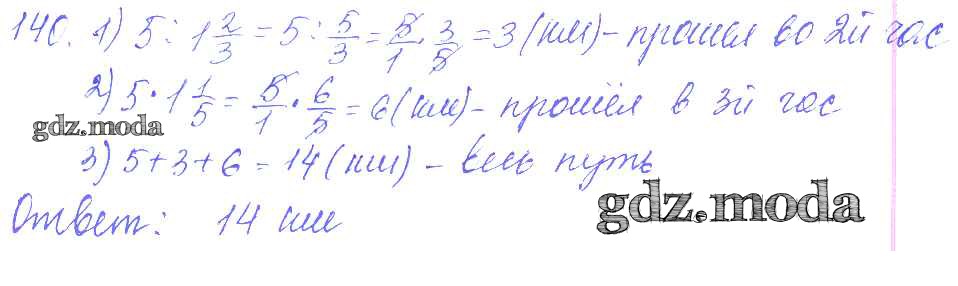 140. 1) 5 : 1 2/3 = 5 : 5/3 = 5/1 · 3/5 = 3 (км) - прошел во 2й час
2) 5 · 1 1/5 = 5/1 · 6/5 = 6 (км) - прошёл в 3й час
gdz.moda
3) 5 + 3 + 6 = 14 (км) - весь путь
Ответ: 14 км
gdz.moda